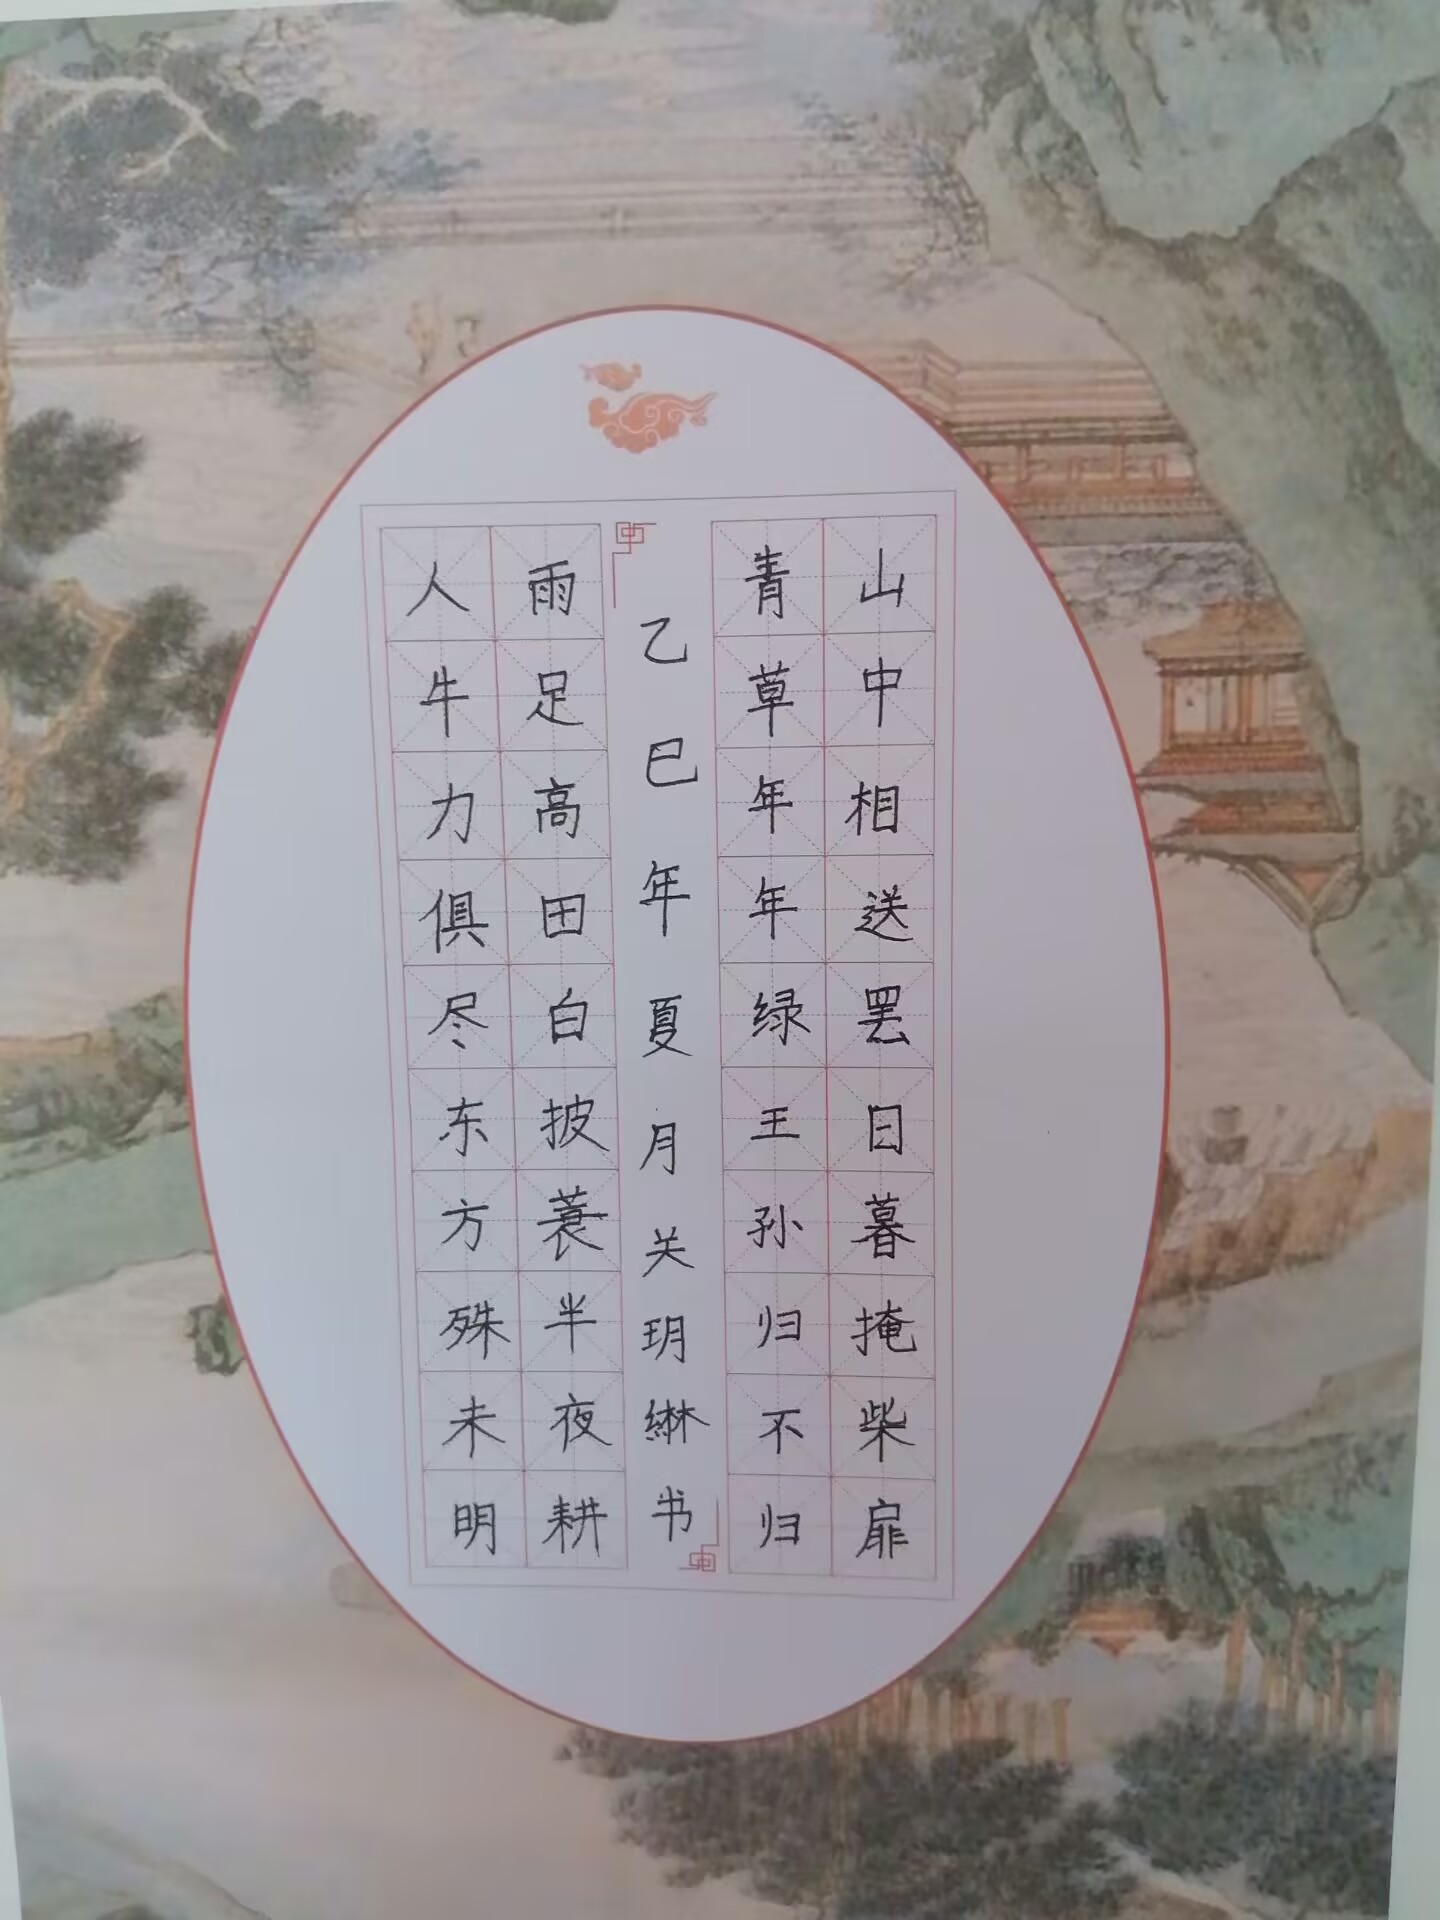 山中相送罢日暮掩柴扉
青草年年绿王孙归不归
乙巳年夏月关玥綝书
雨足高田白披蓑半夜耕
人牛力俱尽东方殊未明